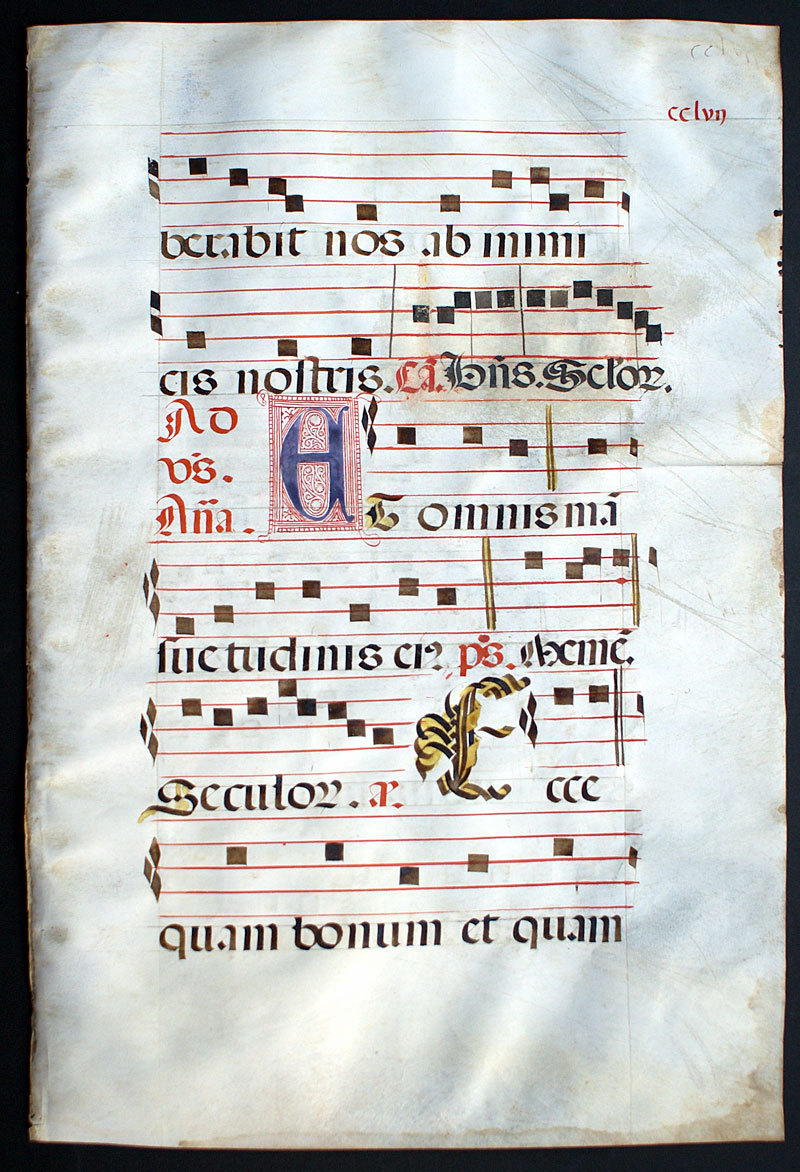 cclvij
berabit nos ab inimi
cis nostris. Cā. Iohñs. Seclor.
Ad
vs̄.
Añа.
Et omnis mā
suetudinis eiꝰ ps̄. Memē.
Seculor. æ. Ecce
quam bonum et quam